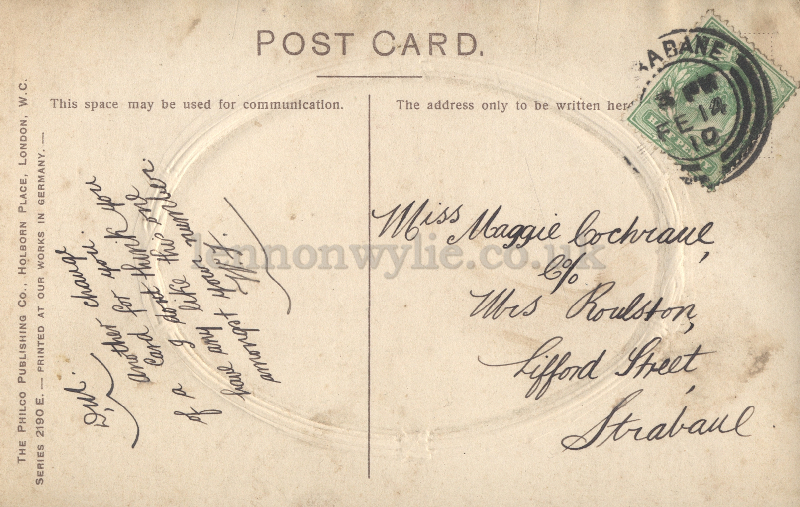 POST CARD.
This space may be used for communication.
The address only to be written here
THE PHILCO PUBLISHING CO., HOLBORN PLACE, LONDON, W.C.
SERIES 2190 E. — PRINTED AT OUR WORKS IN GERMANY. —
change
another for you.
and dont think you
of a card like this one
I
have any your number
amongst yours
W.J.
Miss Maggie Cochrane,
C/o
Mrs Roulston,
Lifford Street,
Strabane
RABANE
PM
FE 14
10
HALF PENNY
lennonwylie.co.uk